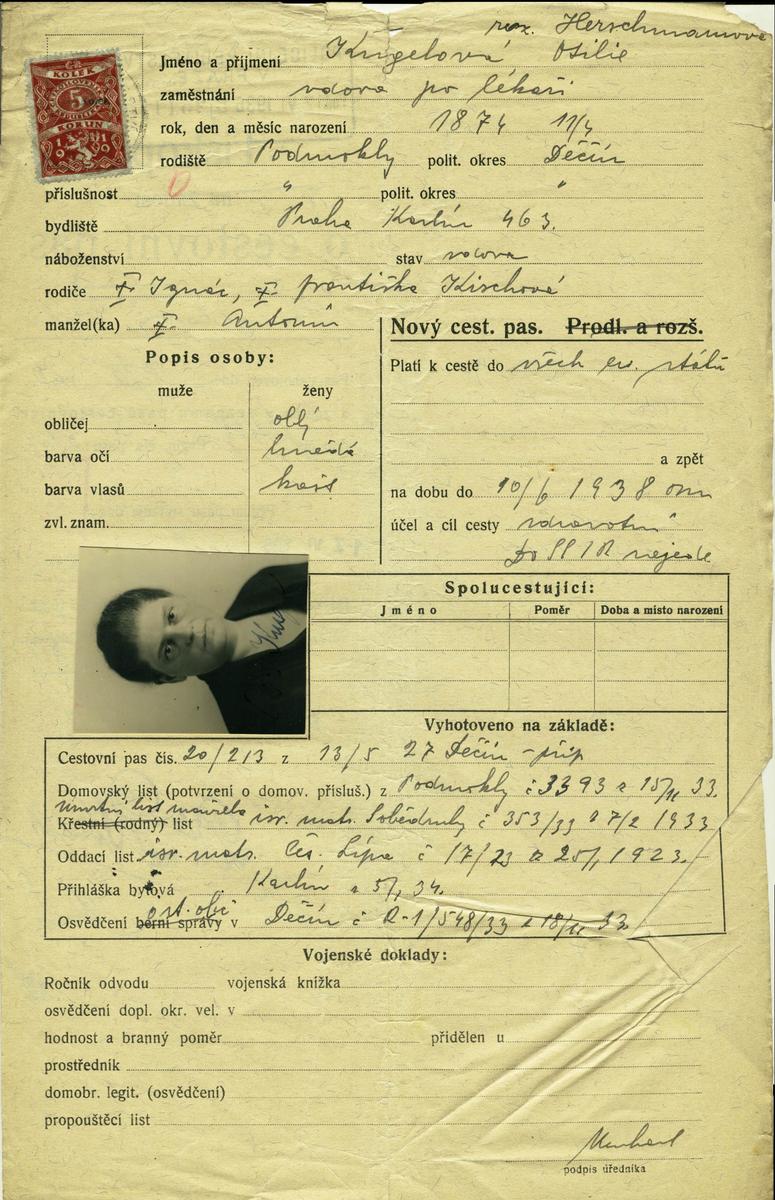 roz. Herschmannova
Jméno a příjmení Kugelová Otilie
zaměstnání vdova po lékaři
rok, den a měsíc narození 1874 11/4
rodiště Podmokly polit. okres Děčín
příslušnost " polit. okres "
bydliště Praha Karlín 463.
náboženství stav vdova
rodiče Ignác, Františka Kischová
manžel(ka) Antonín
Nový cest. pas. Prodl. a rozš.
Popis osoby:
Platí k cestě do všech ev. států
muže ženy
obličej oblý
barva očí hnědá
a zpět
barva vlasů
na dobu do 10/6 1938
zvl. znam.
účel a cíl cesty zdravotní
do SSSR nejede
KOLEK
5
KORUN
1919
Spolucestující:
Jméno Poměr Doba a místo narození
Vyhotoveno na základě:
Cestovní pas čís. 20/213 z 13/5 27 Děčín
Domovský list (potvrzení o domov. přísluš.) z Podmokly č 3393 z 15/11 33.
Úmrtní list manžela
Křestní (rodný) list isr. matr. Sobědruhy č 353/33 z 7/2 1933
Oddací list isr. matr. Čes. Lípa č 17/23 z 25/1 1923.
Přihláška bytová Karlín z 5/1 34.
st. obč
Osvědčení berní správy v Děčín č R-1/548/33 z 18/11 33
Vojenské doklady:
Ročník odvodu vojenská knížka
osvědčení dopl. okr. vel. v
hodnost a branný poměr přidělen u
prostředník
domobr. legit. (osvědčení)
propouštěcí list
podpis úředníka